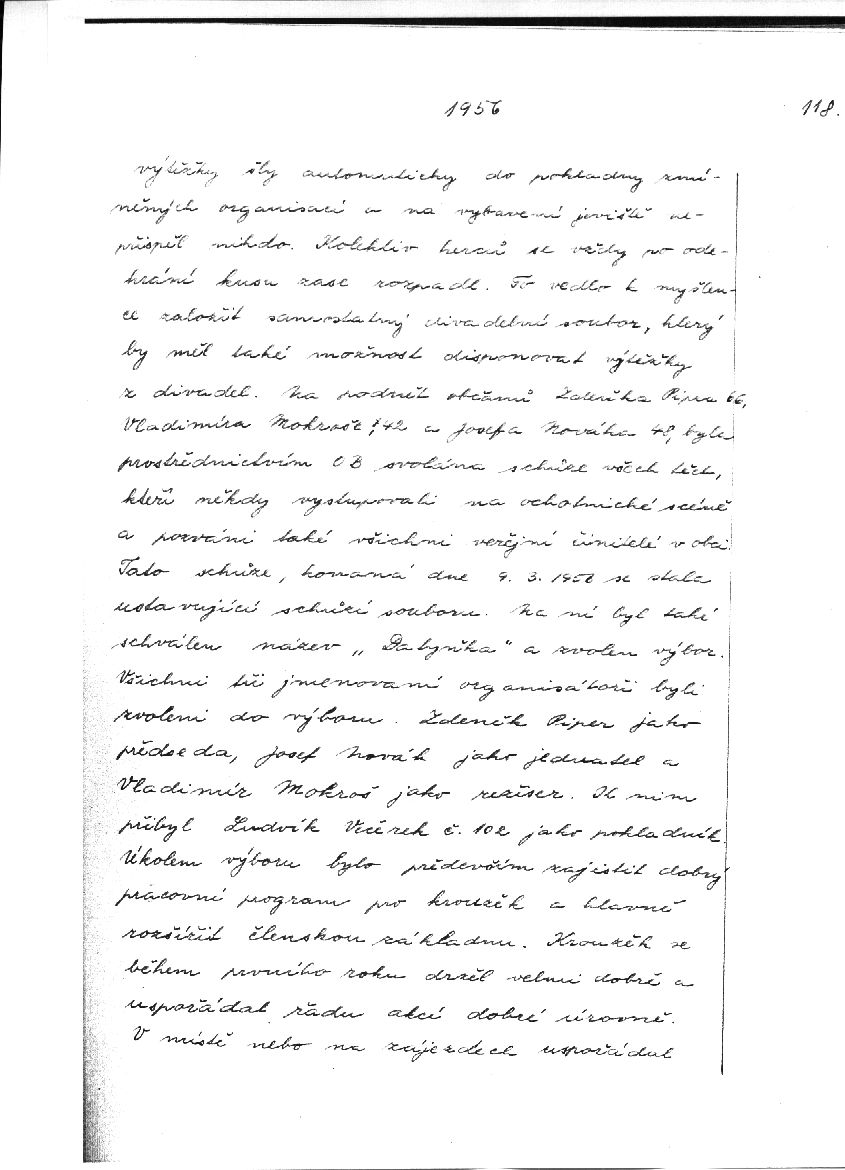 1956
118.
výtěžky šly automaticky do pokladny zmí-
něných organisací a na vybavení jeviště ne-
přispěl nikdo. Kolektiv herců se vždy po ode-
hrání kusu zase rozpadl. To vedlo k myšlen-
ce založit samostatný divadelní soubor, který
by měl také možnost disponovat výtěžky
z divadel. Na podnět občanů Zdeňka Pipra 66,
Vladimíra Mokroše 142 a Josefa Nováka 48, byla
prostřednictvím OB svolána schůze všech těch,
kteří někdy vystupovali na ochotnické scéně
a pozváni také všichni veřejní činitelé v obci.
Tato schůze, konaná dne 9. 3. 1956 se stala
ustavující schůzí souboru. Na ní byl také
schválen název „Dalynka" a zvolen výbor.
Všichni tři jmenovaní organisátoři byli
zvoleni do výboru. Zdeněk Piper jako
předseda, Josef Novák jako jednatel a
Vladimír Mokroš jako režiser. K nim
přibyl Ludvík Večerek č. 102 jako pokladník.
Úkolem výboru bylo především zajistit dobrý
pracovní program pro kroužek a hlavně
rozšířit členskou základnu. Kroužek se
během prvního roku držel velmi dobře a
uspořádal řadu akcí dobré úrovně.
V místě nebo na zájezdech uspořádal